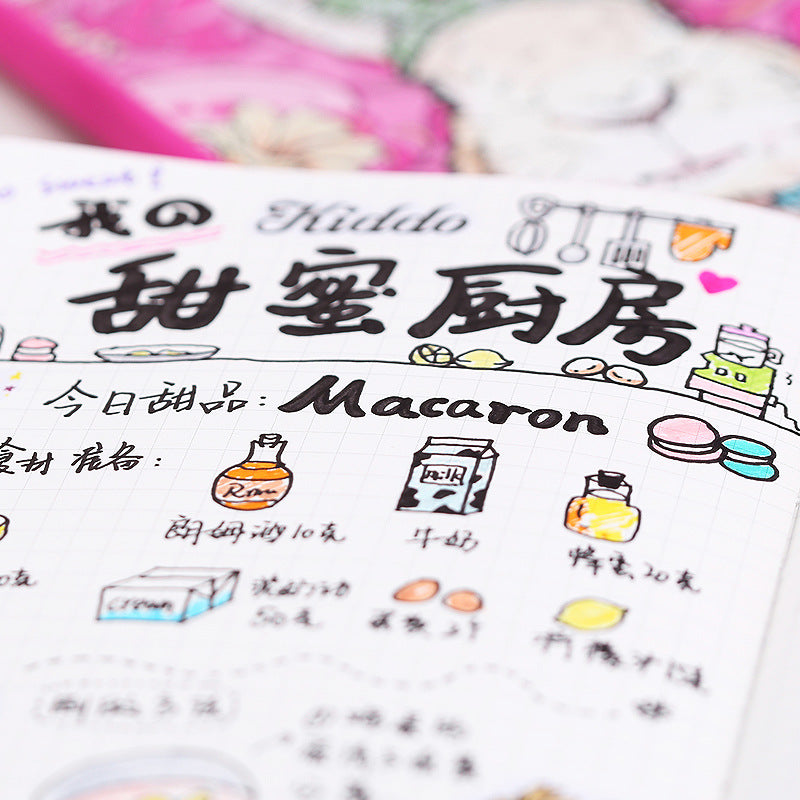 我の Kiddo
甜蜜厨房
今日甜品: Macaron
食材准备:
Rum
milk
朗姆酒10克
牛奶
蜂蜜20克
cream
淡奶油
50克
蛋黄2个
柠檬
制作方法